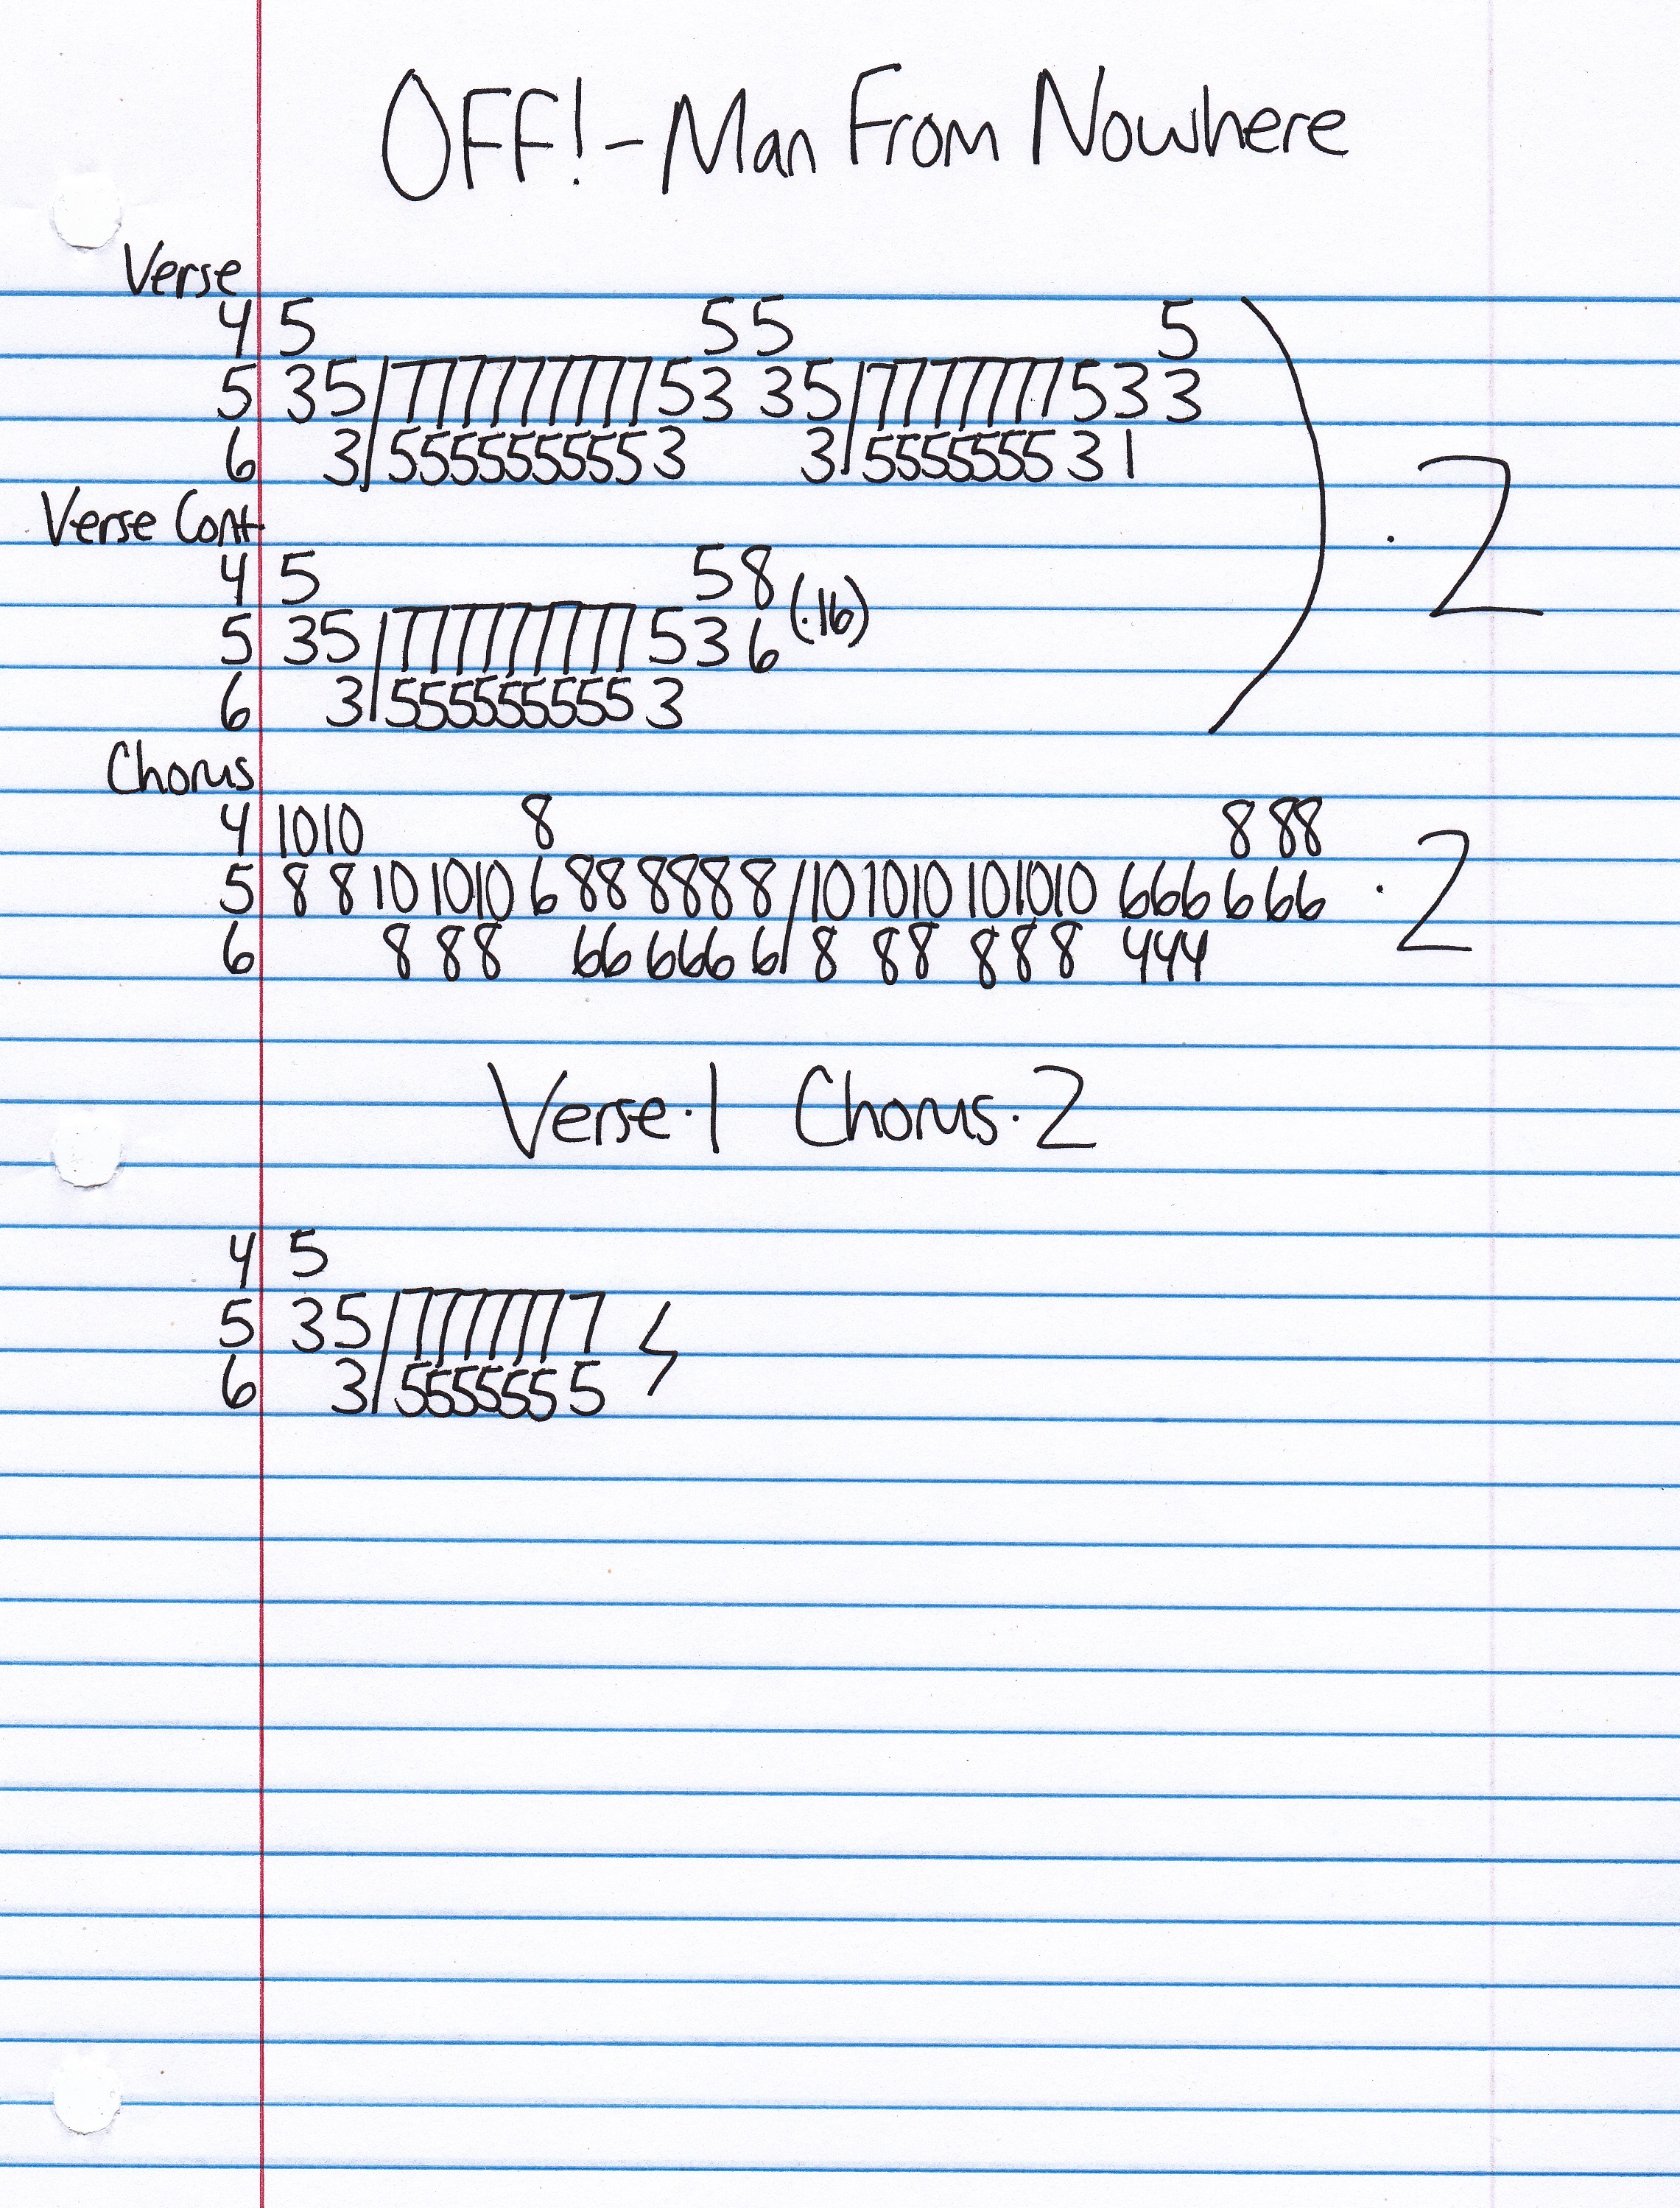 OFF! - Man From Nowhere
Verse
4 5 5 5 5
5 3 5 / 7 7 7 7 7 7 7 7 7 5 3 3 5 / 7 7 7 7 7 7 7 5 3 3
6 3 / 5 5 5 5 5 5 5 5 5 3 3 / 5 5 5 5 5 5 5 3 1
Verse Cont.
4 5 5 8
5 3 5 / 7 7 7 7 7 7 7 7 7 5 3 6 (·16)
6 3 / 5 5 5 5 5 5 5 5 5 3
· 2
Chorus
4 10 10 8 8 8 8
5 8 8 10 10 10 6 8 8 8 8 8 8 / 10 10 10 10 10 10 6 6 6 6 6 6 · 2
6 8 8 8 6 6 6 6 6 6 / 8 8 8 8 8 8 4 4 4
Verse · 1 Chorus · 2
4 5
5 3 5 / 7 7 7 7 7 7 7
6 3 / 5 5 5 5 5 5 5